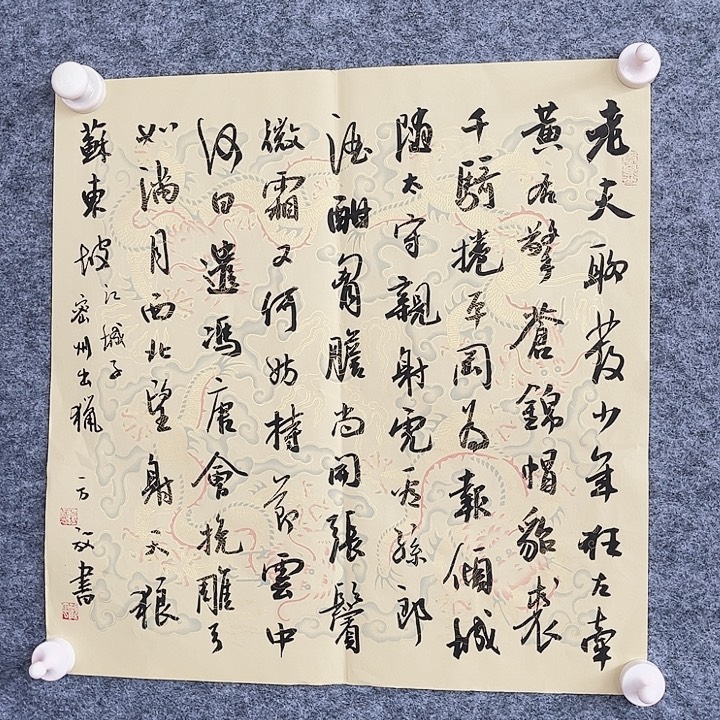 老夫聊發少年狂左牽
黃右擎蒼錦帽貂裘
千騎捲平岡為報傾城
隨太守親射虎看孫郎
酒酣胷膽尚開張鬢
微霜又何妨持節雲中
何日遣馮唐會挽雕弓
如滿月西北望射天狼
蘇東坡
江城子
密州出獵 一方
書